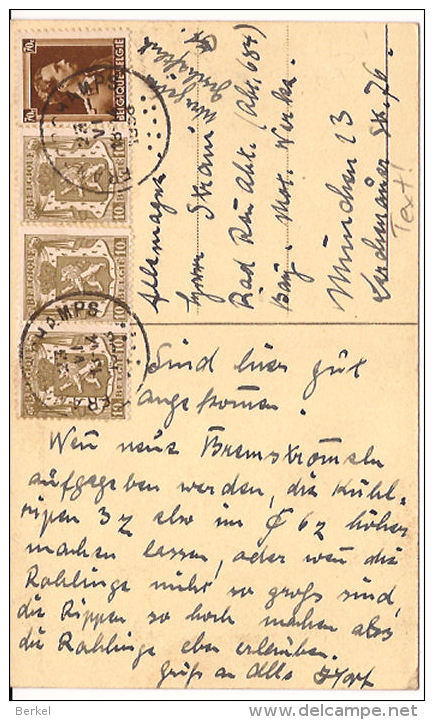 70c
BELGIQUE-BELGIE
70c
BELGIQUE
BELGIE
10
10
BELGIQUE
10
10
10
10
CHAMPS
1938
Allemagne
Herrn
Rad Rën Abt. (Abt. 684)
Bay. Mot. Werke
München 23
76
Text!
Sind hier gut
angekommen.
Wenn neue Bremstrommeln
aufgegeben werden, die Kühl-
rippen 3 also im 6 höher
machen lassen, oder wenn die
Rohlinge nicht so groß sind,
die Rippen so hoch machen als
die Rohlinge eben erlauben.
Gruß an Alle
Berkel
http://www.delcampe.net